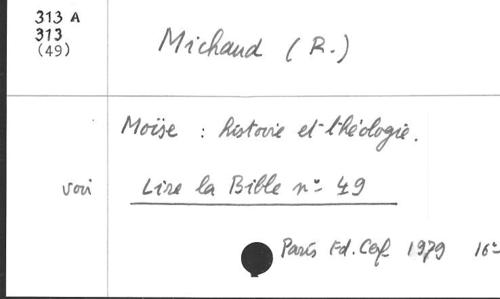 313 A
313
(49)
Michaud (R.)
Moïse : histoire et théologie.
voir Lire la Bible n° 49
Paris Ed. Cerf 1979 16°